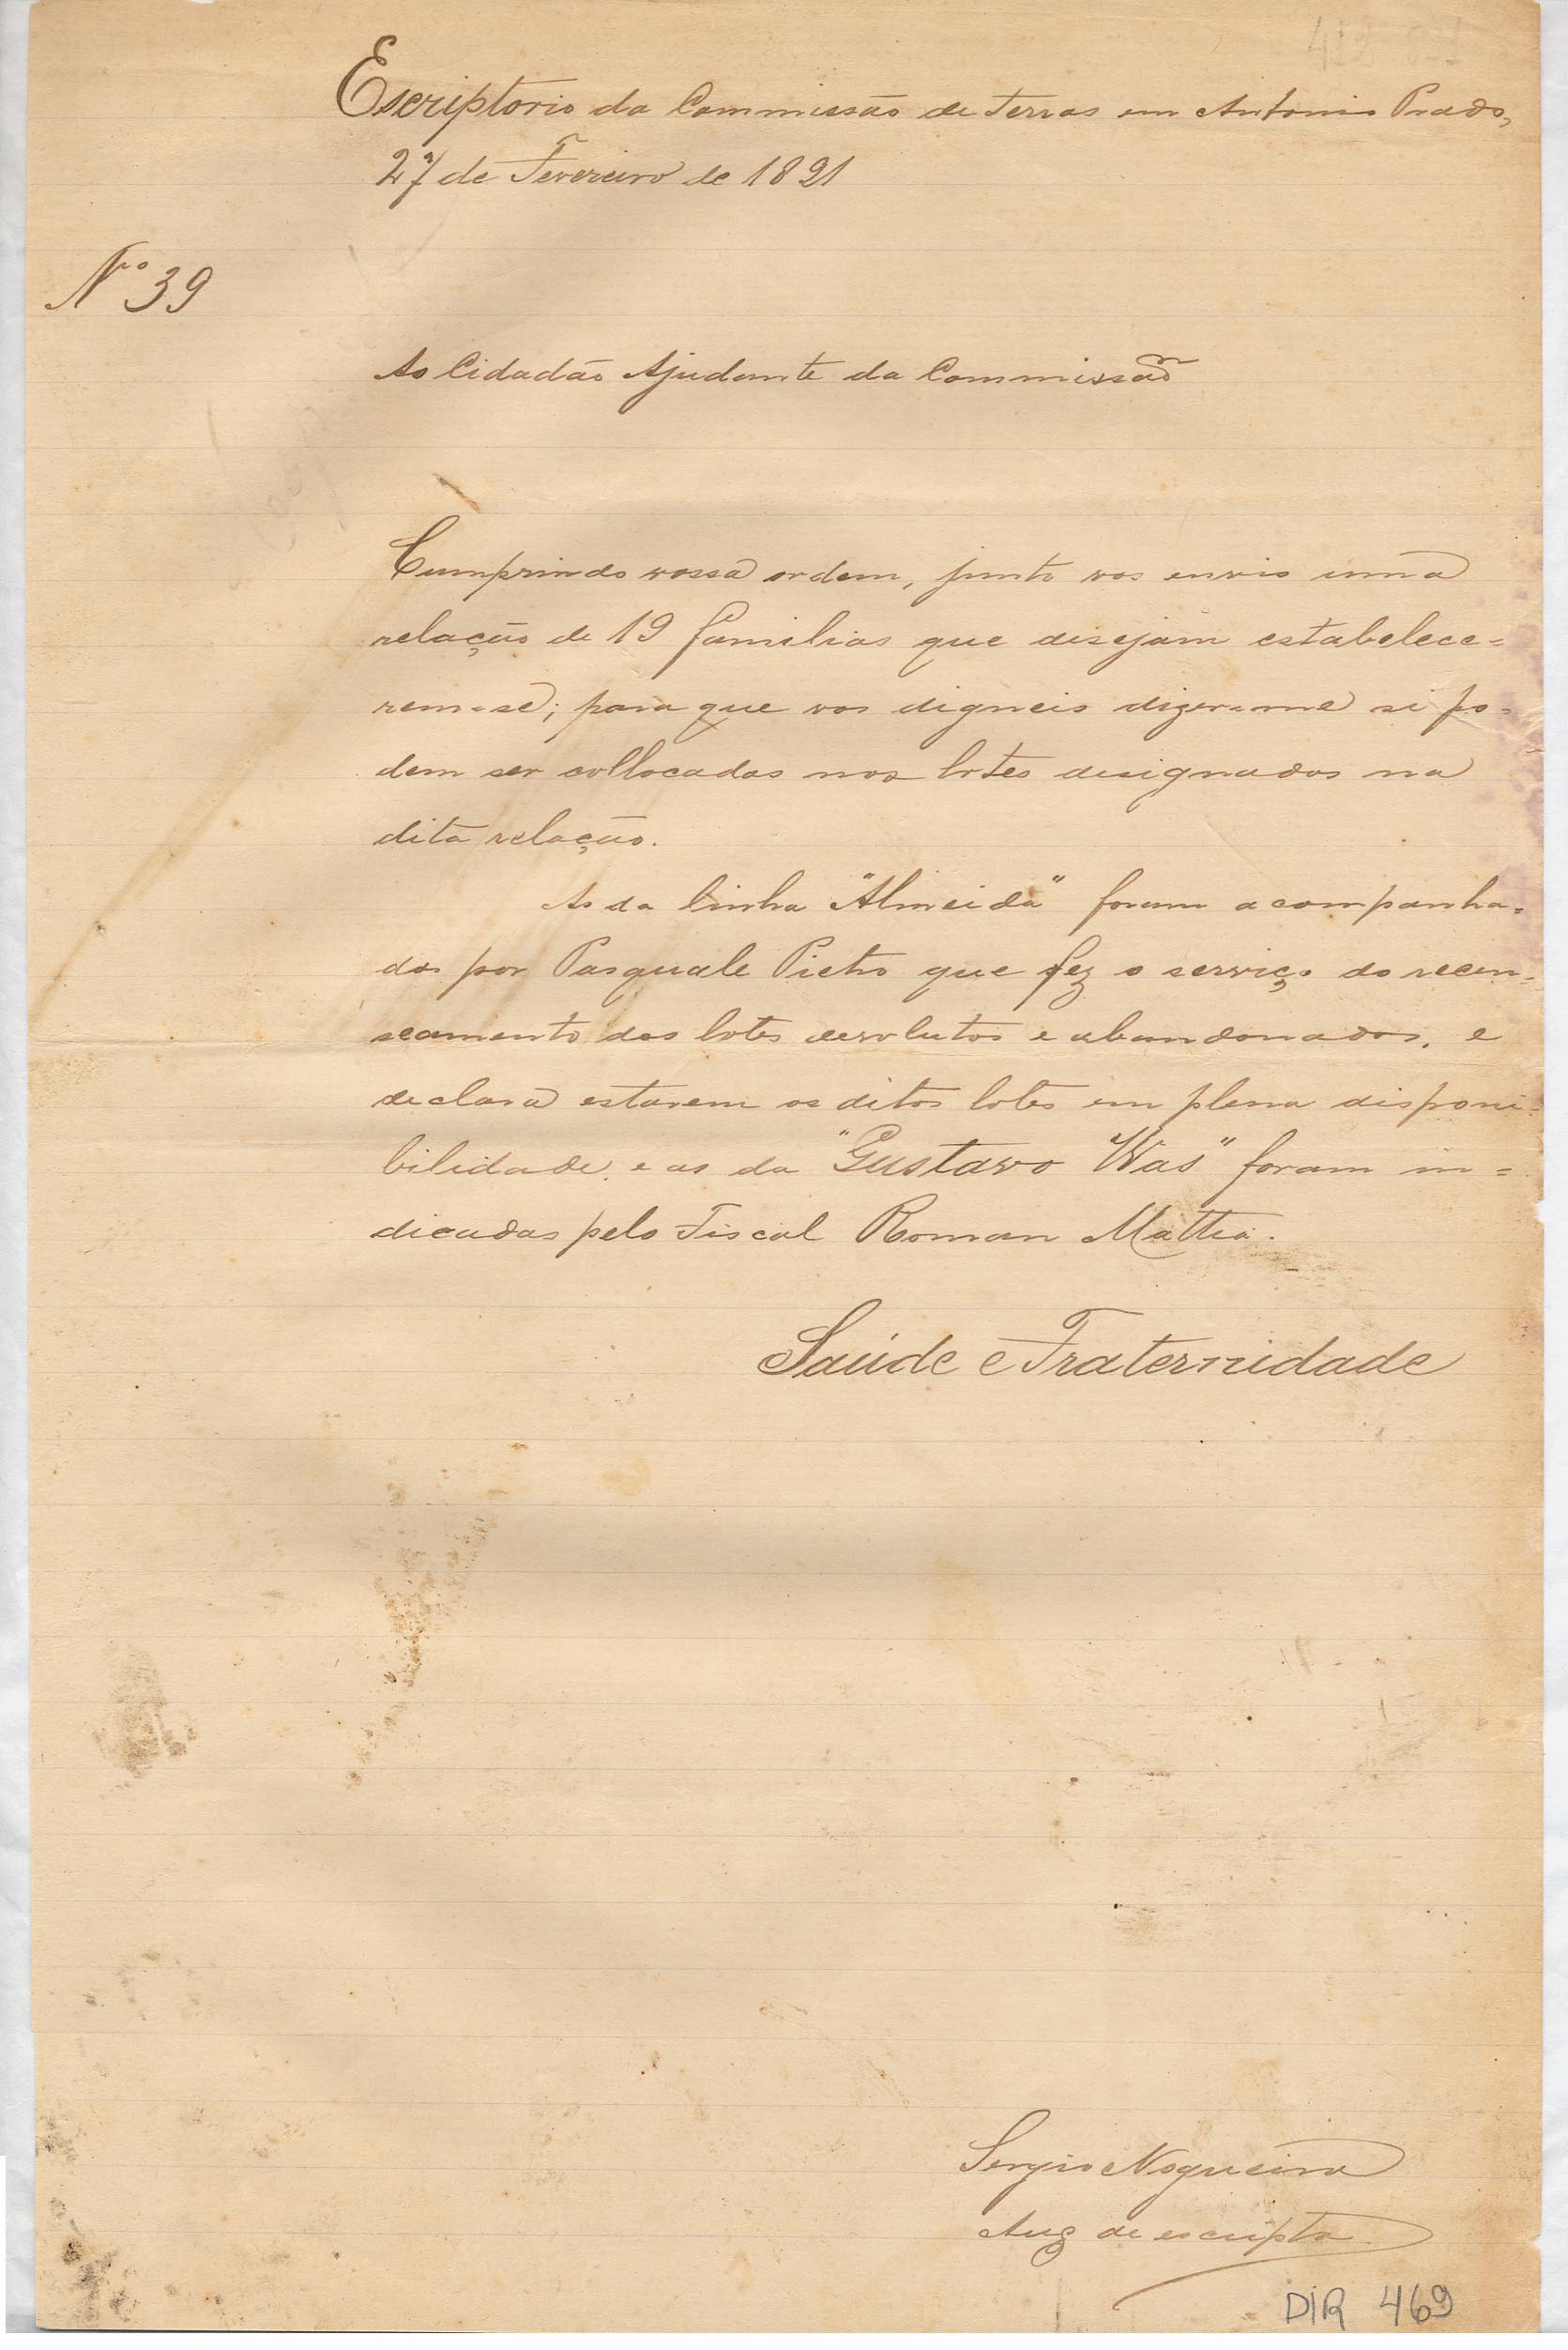 Escriptorio da Commissão de Terras em Antonio Prado,
27 de Fevereiro de 1891
Nº 39
Ao Cidadão Ajudante da Commissão
Cumprindo vossa ordem, junto vos envio uma
relação de 19 familias que desejam estabelece=
rem=se; para que vos digneis dizer=me si po=
dem ser collocadas nos lotes designados na
dita relação.
As da linha "Almeida" foram acompanha=
das por Pasquale Pietro que fez o serviço do recen=
seamento dos lotes devolutos e abandonados, e
declara estarem os ditos lotes em plena disponi=
bilidade, e as da "Gustavo Was" foram in=
dicadas pelo Fiscal Roman Mattia.
Saúde e Fraternidade
Sergio Nogueira
Aux de escripta
DIR 469